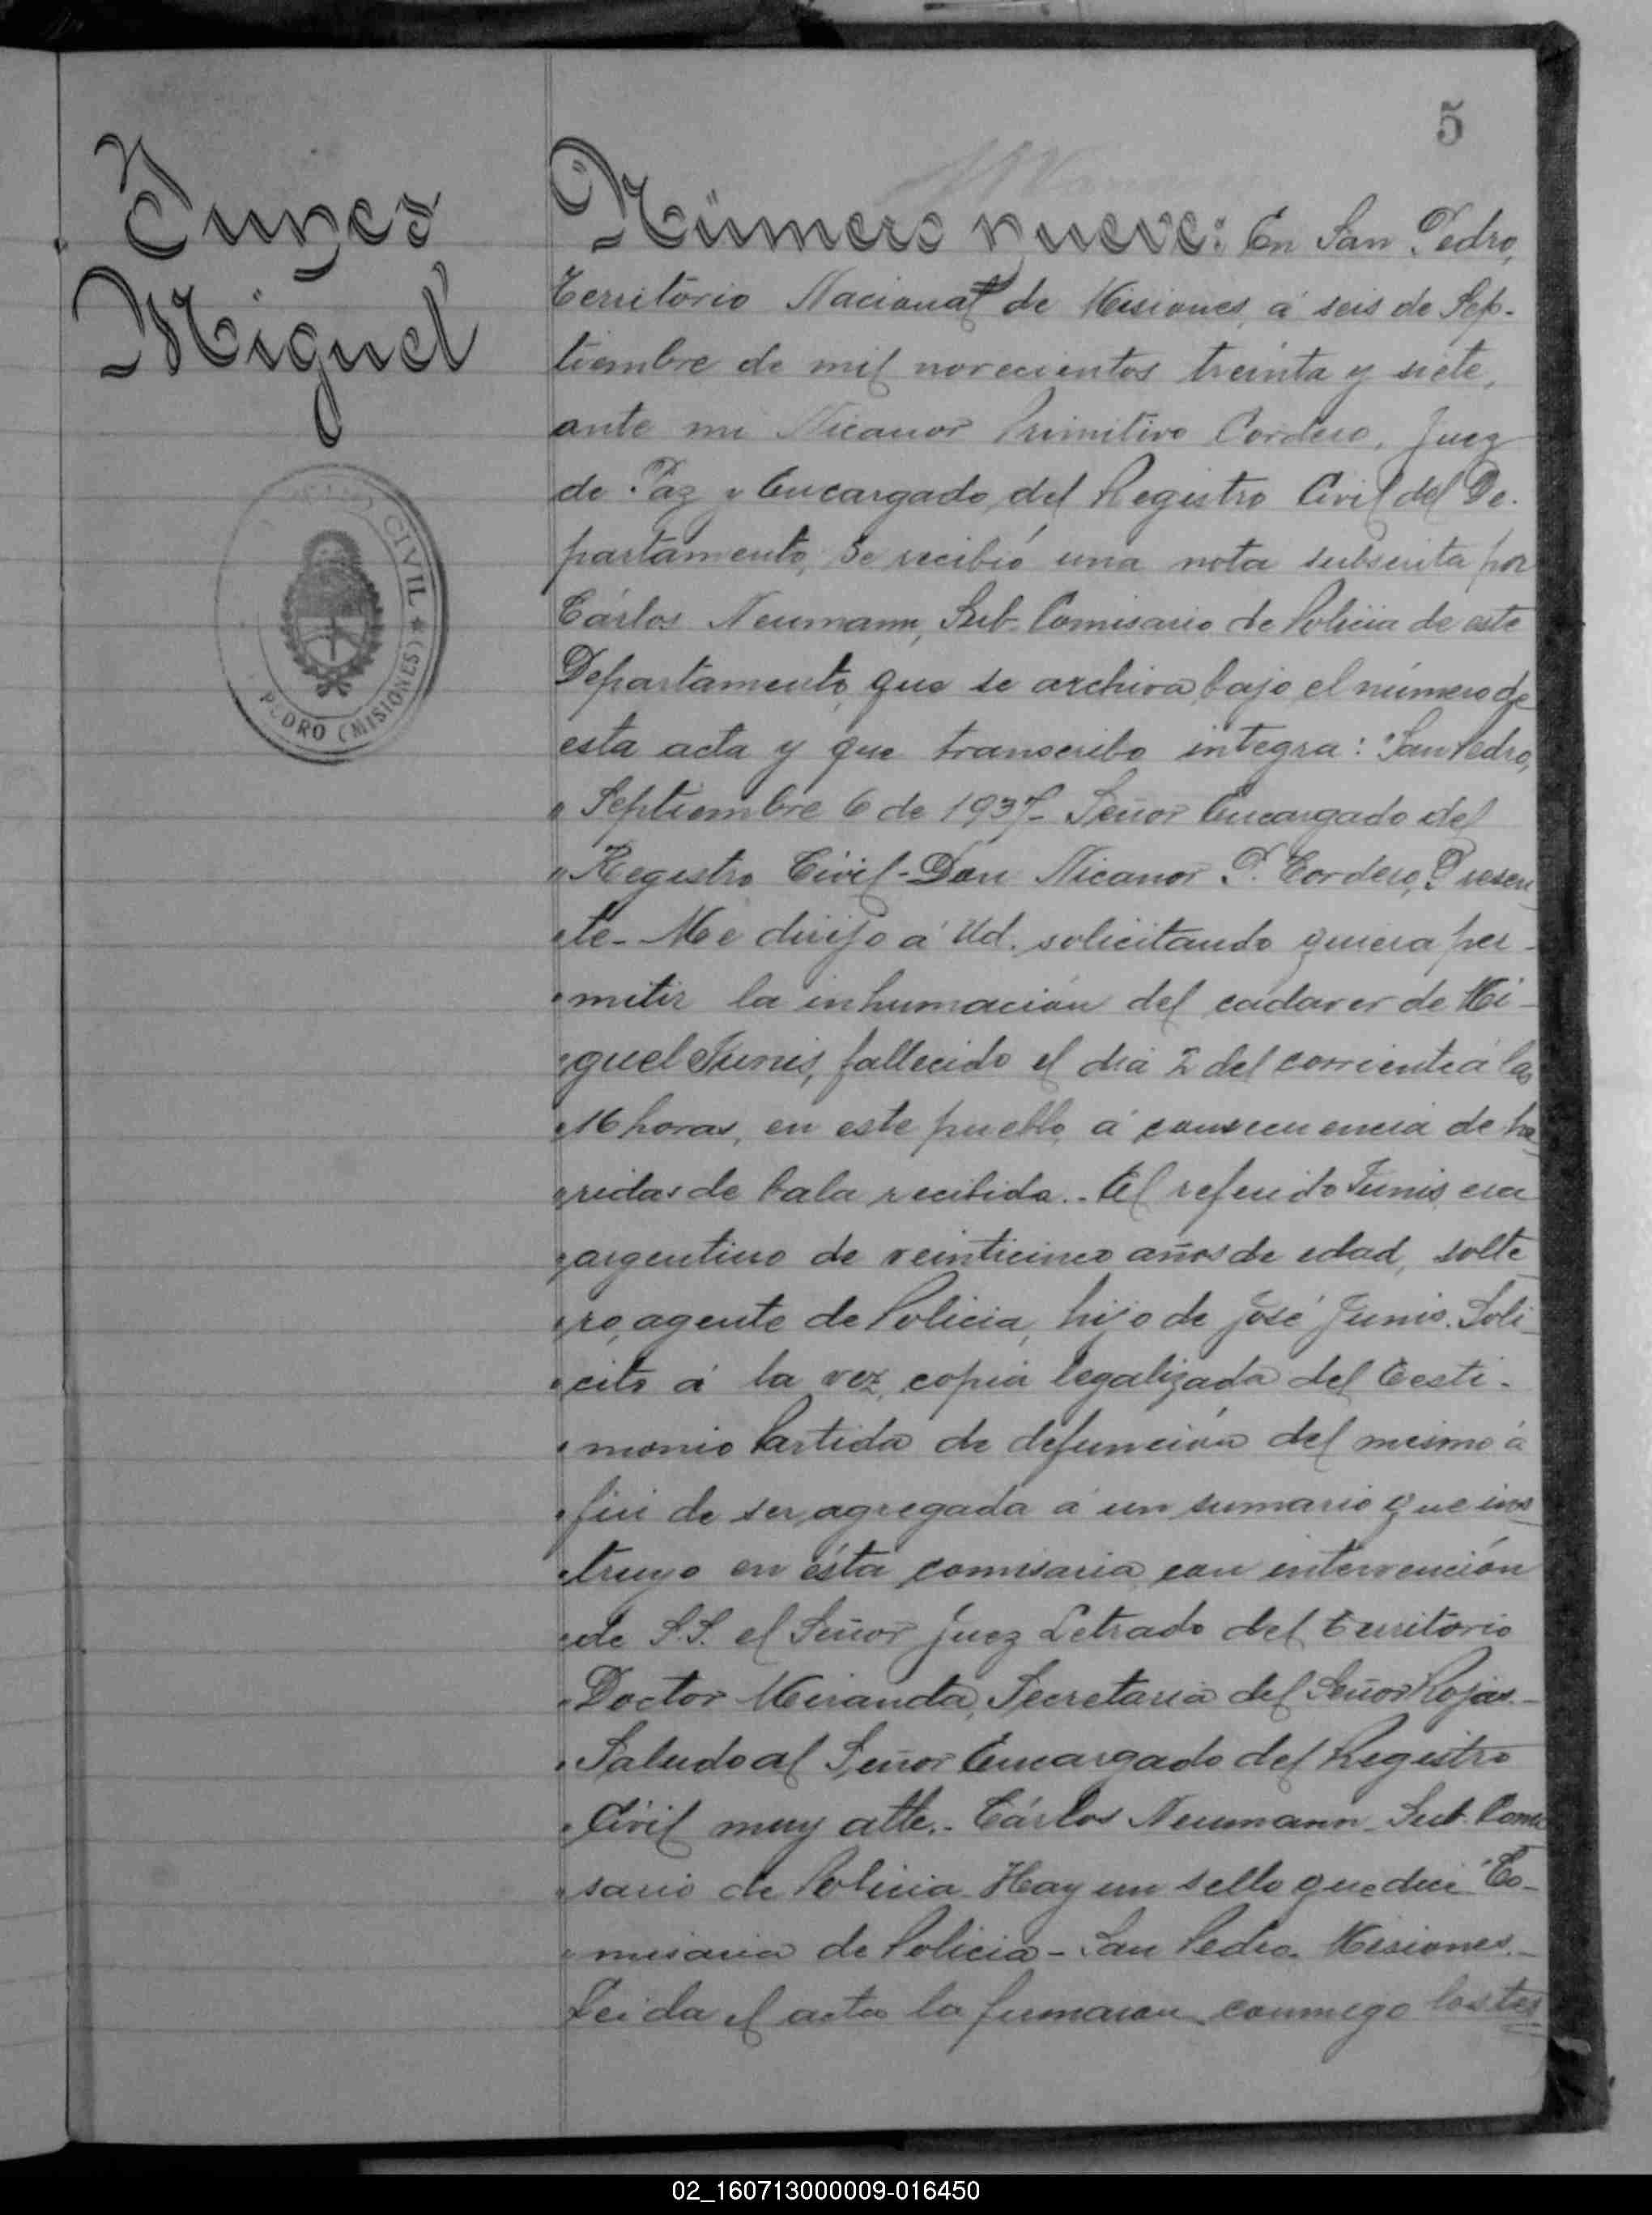 5
Miguel
CIVIL ★
PEDRO (MISIONES)
Número nueve: En San Pedro,
Territorio Nacional de Misiones, á seis de Sep-
tiembre de mil novecientos treinta y siete,
ante mi Nicanor Primitivo Cordero, Juez
de Paz y Encargado del Registro Civil del De-
partamento, se recibió una nota subscrita por
Cárlos Neumann, Sub-Comisario de Policia de este
Departamento, que se archiva bajo el número de
esta acta y que transcribo integra: "San Pedro,
" Septiembre 6 de 1937- Señor Encargado del
" Registro Civil-Don Nicanor P. Cordero, Presen
" te- Me dirijo á Ud. solicitando quiera per-
" mitir la inhumación del cadaver de Mi-
" guel Junis, fallecido el dia 2 del corriente á las
" 16 horas, en este pueblo, á consecuencia de he
" ridas de bala recibida.- El referido Junis era
" argentino de veinticinco años de edad, solte
" ro, agente de Policia, hijo de José Junis. Soli-
" cito á la vez, copia legalizada del Testi-
" monio Partida de defunción del mismo á
" fin de ser agregada á un sumario que ins
" truyo en ésta comisaria con intervención
" de S.S. el Señor Juez Letrado del Territorio
" Doctor Miranda, Secretaria del Señor Rojas.-
" Saludo al Señor Encargado del Registro
" Civil muy atte.- Cárlos Neumann-Sub-Comi
" sario de Policia-Hay un sello que dice "Co-
" misaria de Policia-San Pedro-Misiones.-
Leida el acta la firmaron conmigo los tes
02_160713000009-016450